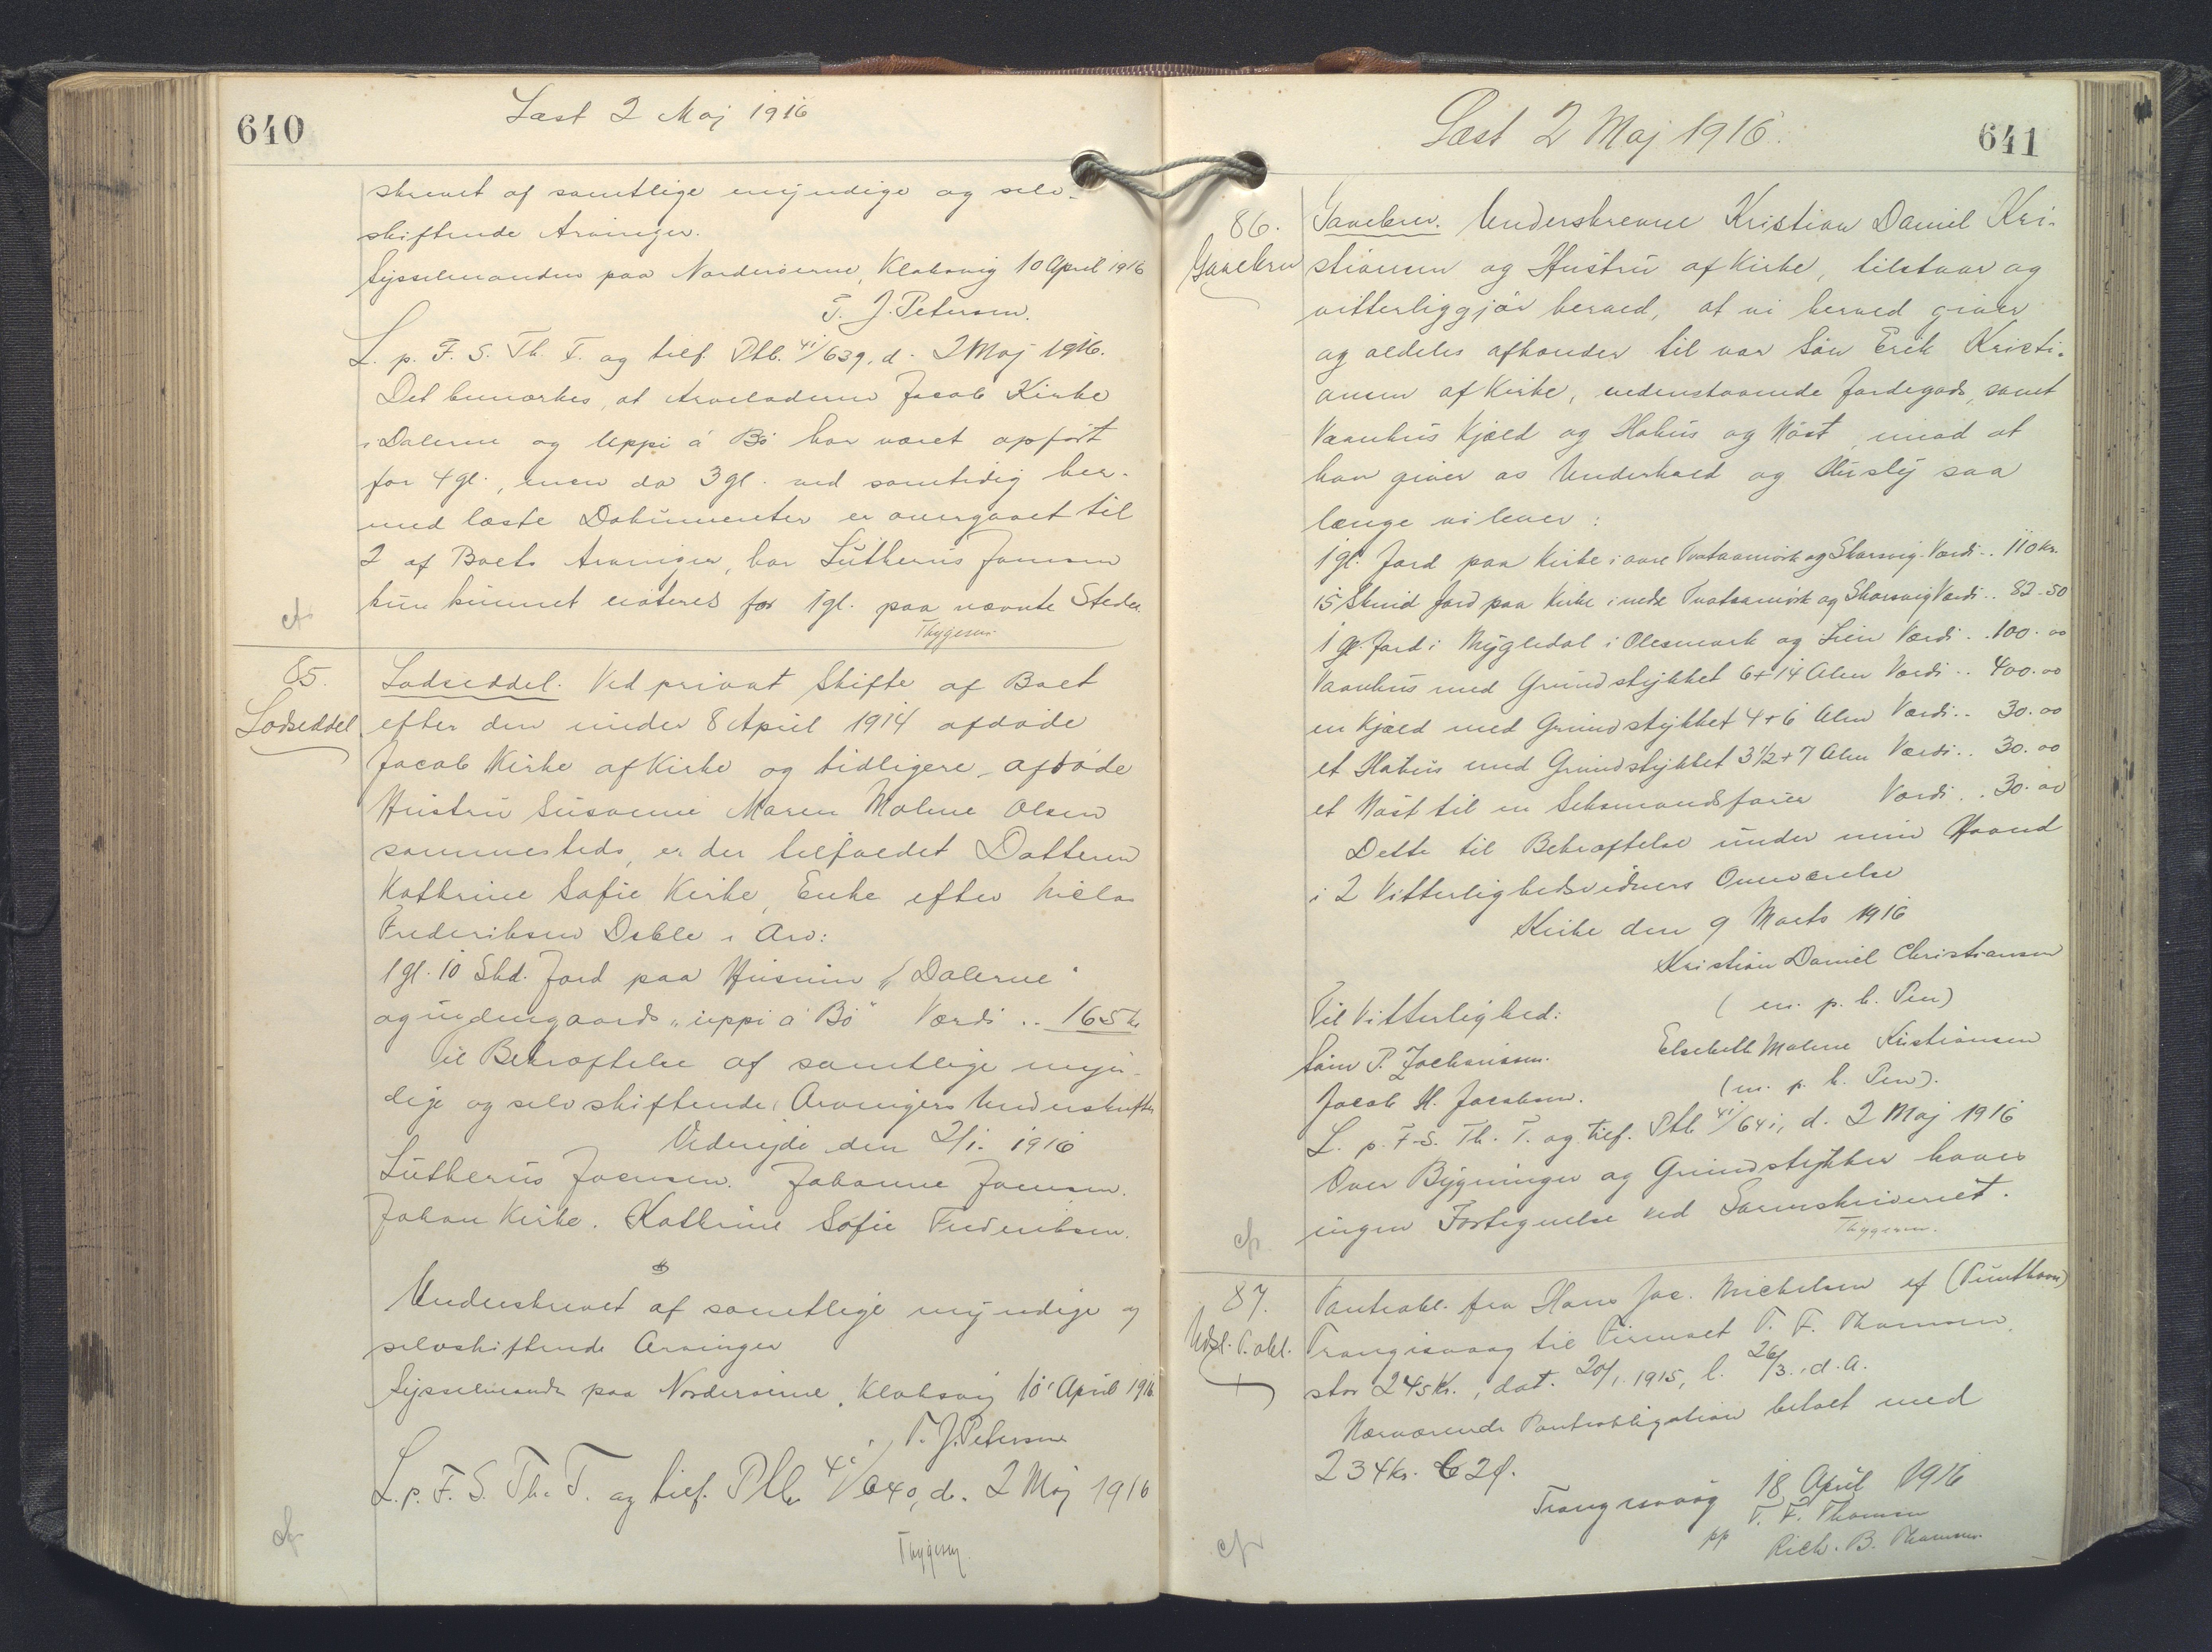 640
Læst 2 Maj 1916
skrevet af samtlige myndige og selv-
skiftende Arvinger.
Sysselmanden paa Norderöerne, Klaksvig 10 April 1916
T. J. Petersen.
L. p. F. S. Th. T. og tilf. Ptb. 41/639, d. 2 Maj 1916.
Det bemærkes, at Arveladeren Jacob Kirke
i Dalerne og uppi á Bö har været opfört
for 4 gl., men da 3 gl. ved samtidig her-
med læste Dokumenter er overgaaet til
2 af Boets Arvinger, har Lútherus Joensen
kun kunnet noteres for 1 gl. paa nævnte Steder
Thygesen.
85.
Lodseddel
Lodseddel. Ved privat Skifte af Boet
efter den under 8 April 1914 afdöde
Jacob Kirke af Kirke og tidligere afdöde
Hustru Susanne Maren Malene Olsen
sammesteds, er der tilfaldet Datteren
Kathrine Sofie Kirke, Enke efter Niels
Frederiksen Deble i Arv:
1 gl. 10 Skd. Jord paa Husum i "Dalerne"
og indengaards "uppi á Bö" Værdi .. 165 Kr
Til Bekræftelse af samtlige myn-
dige og selvskiftende Arvingers Underskrifter
Videreide den 2/1. 1916
Lútherus Joensen. Johanne Joensen.
Johan Kirke. Kathrine Sofie Frederiksen.
Underskrevet af samtlige myndige og
selvskiftende Arvinger
Sysselmanden paa Norderöerne, Klaksvig 10 April 1916
T. J. Petersen
L. p. F. S. Th. T. og tilf. Ptb. 41/640, d. 2 Maj 1916
Thygesen.
Læst 2 Maj 1916.
641
86.
Gavebrev
Gavebrev. Underskrevne Kristian Daniel Kri-
stiansen og Hustru af Kirke, tilstaar og
vitterliggjör herved, at vi herved giver
og aldeles afhænder til vor Sön Erik Kristi-
ansen af Kirke, nedenstaaende Jordegods, samt
Vaanhus Kjæld og Hohus og Nöst, imod at
han giver os Underhold og Husly saa
længe vi lever:
1 gl. Jord paa Kirke i øvre Tvataamörk og Skarsvig. Værdi .. 110 Kr.
15 Skind Jord paa Kirke i nedre Tvataamörk og Skarsvig Værdi .. 82-50
1 gl. Jord i Mygledal i Olesmark og Lien Værdi .. 100.00
Vaanhus med Grundstykket 6 + 14 Alen Værdi .. 400.00
en Kjæld med Grundstykket 4 + 6 Alen Værdi .. 30.00
et Hohus med Grundstykket 3 1/2 + 7 Alen Værdi .. 30.00
et Nöst til en Seksmandsfarer Værdi .. 30.00
Dette til Bekræftelse under min Haand
i 2 Vitterlighedsvidners Overværelse
Kirke den 9 Marts 1916
Kristian Daniel Christiansen
Til Vitterlighed:
(m. p. h. Pen)
Elsebeth Malene Kristiansen
Jacob H. Jacobsen.
(m. p. h. Pen).
L. p. F. S. Th. T. og tilf. Ptb 41/641, d. 2 Maj 1916
Over Bygninger og Grundstykker haves
ingen Fortegnelse ved Sorenskriveriet.
Thygesen.
87.
Udsl. P. obl.
Pantobl. fra Hans Jac. Michelsen af (Punthavn)
Trangisvaag til Firmaet T. F. Thomsen,
stor 245 Kr., dat. 20/1. 1915, l. 26/3. d. A.
Nærværende Pantobligation betalt med
234 Kr. 62 ø.
Trangisvaag 18 April 1916
T. F. Thomsen
pp Rich. B. Thomsen.